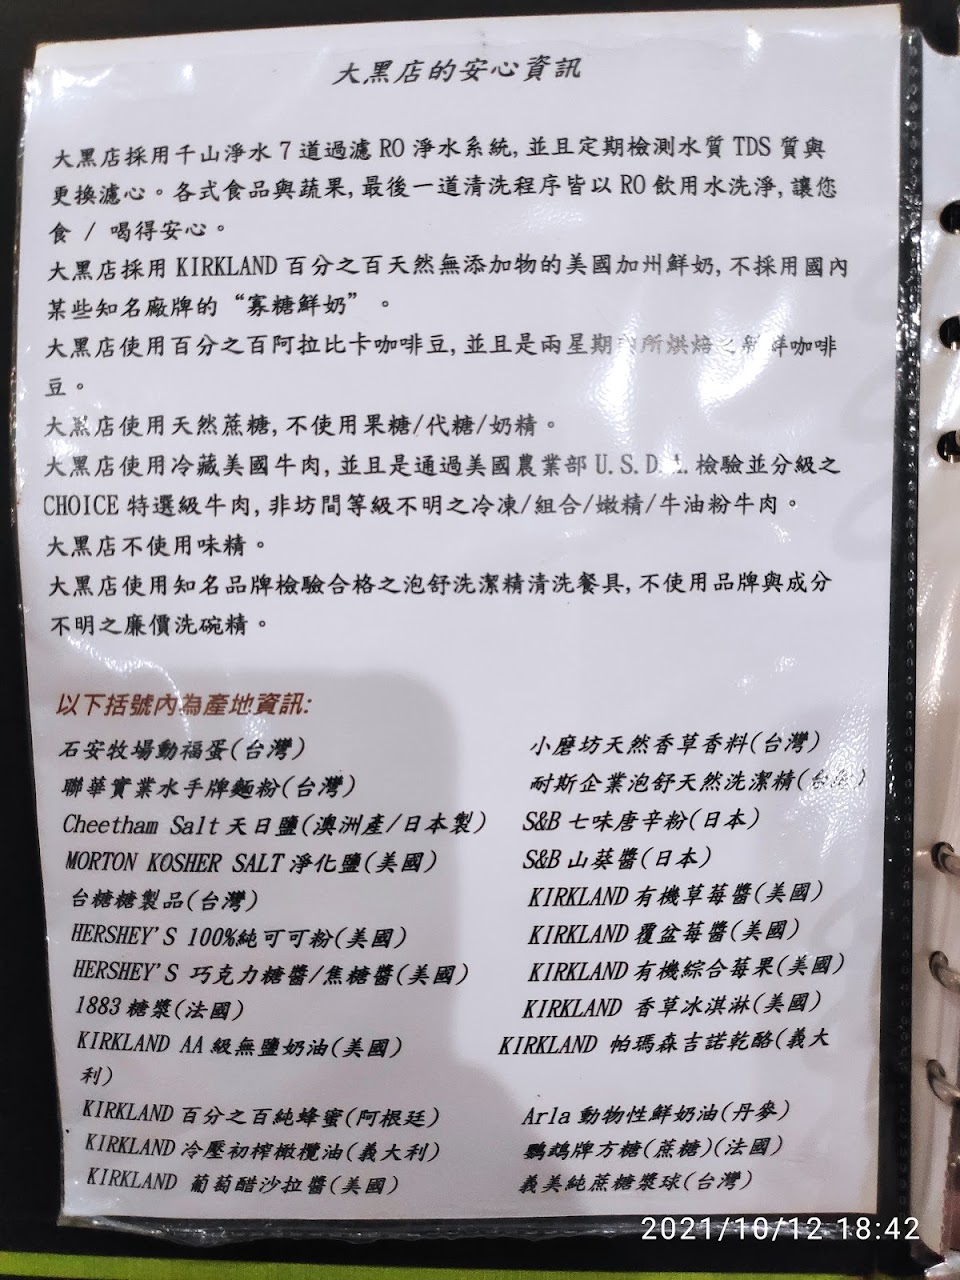 大黑店的安心資訊
大黑店採用千山淨水 7 道過濾 RO 淨水系統, 並且定期檢測水質 TDS 質與
更換濾心。各式食品與蔬果, 最後一道清洗程序皆以 RO 飲用水洗淨, 讓您
食 / 喝得安心。
大黑店採用 KIRKLAND 百分之百天然無添加物的美國加州鮮奶, 不採用國內
某些知名廠牌的 “寡糖鮮奶” 。
大黑店使用百分之百阿拉比卡咖啡豆, 並且是兩星期 所烘焙之新鮮咖啡
豆。
大黑店使用天然蔗糖, 不使用果糖/代糖/奶精。
大黑店使用冷藏美國牛肉, 並且是通過美國農業部 U.S.D.A. 檢驗並分級之
CHOICE 特選級牛肉, 非坊間等級不明之冷凍/組合/嫩精/牛油粉牛肉。
大黑店不使用味精。
大黑店使用知名品牌檢驗合格之泡舒洗潔精清洗餐具, 不使用品牌與成分
不明之廉價洗碗精。
以下括號內為產地資訊:
石安牧場動福蛋(台灣) 小磨坊天然香草香料(台灣)
聯華實業水手牌麵粉(台灣) 耐斯企業泡舒天然洗潔精(台灣)
Cheetham Salt 天日鹽(澳洲產/日本製) S&B 七味唐辛粉(日本)
MORTON KOSHER SALT 淨化鹽(美國) S&B 山葵醬(日本)
台糖糖製品(台灣) KIRKLAND 有機草莓醬(美國)
HERSHEY'S 100%純可可粉(美國) KIRKLAND 覆盆莓醬(美國)
HERSHEY'S 巧克力糖醬/焦糖醬(美國) KIRKLAND 有機綜合莓果(美國)
1883 糖漿(法國) KIRKLAND 香草冰淇淋(美國)
KIRKLAND AA 級無鹽奶油(美國) KIRKLAND 帕瑪森吉諾乾酪(義大
利)
KIRKLAND 百分之百純蜂蜜(阿根廷) Arla 動物性鮮奶油(丹麥)
KIRKLAND 冷壓初榨橄欖油(義大利) 鸚鵡牌方糖(蔗糖)(法國)
KIRKLAND 葡萄醋沙拉醬(美國) 義美純蔗糖漿球(台灣)
2021/10/12 18:42